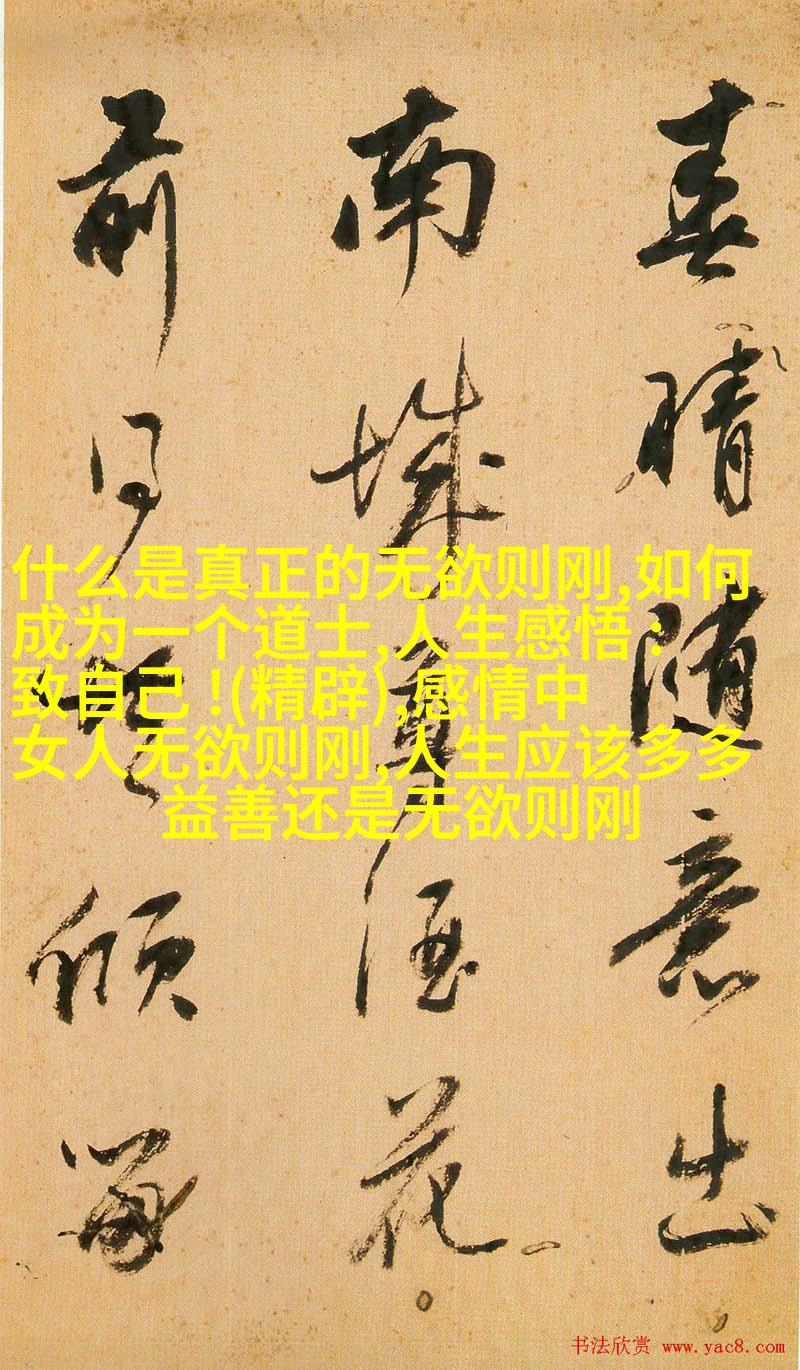 春晴随意出
南城酒花
前同倾
什么是真正的无欲则刚,如何
成为一个道士,人生感悟 :
致自己 !(精辟),感情中
女人无欲则刚,人生应该多多
益善还是无欲则刚
书法欣赏 www.yac8.com